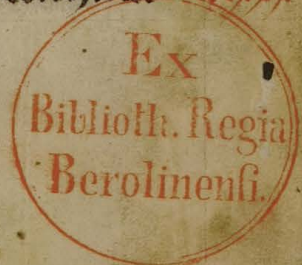 Ex
Biblioth. Regia
Berolinenſi.